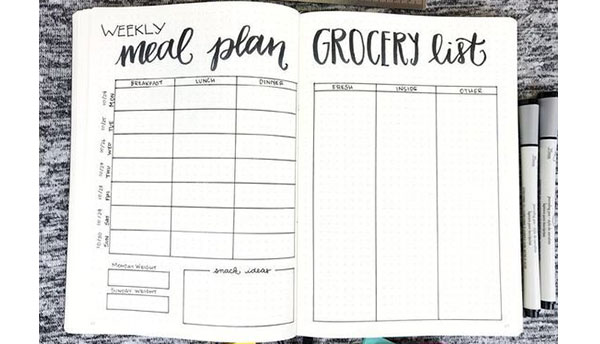 WEEKLY
meal plan
BREAKFAST LUNCH DINNER
MON
TUE
WED
THU
FRI
SAT
SUN
MONDAY WEIGHT
SUNDAY WEIGHT
snack ideas
GROCERY list
FRESH INSIDE OTHER